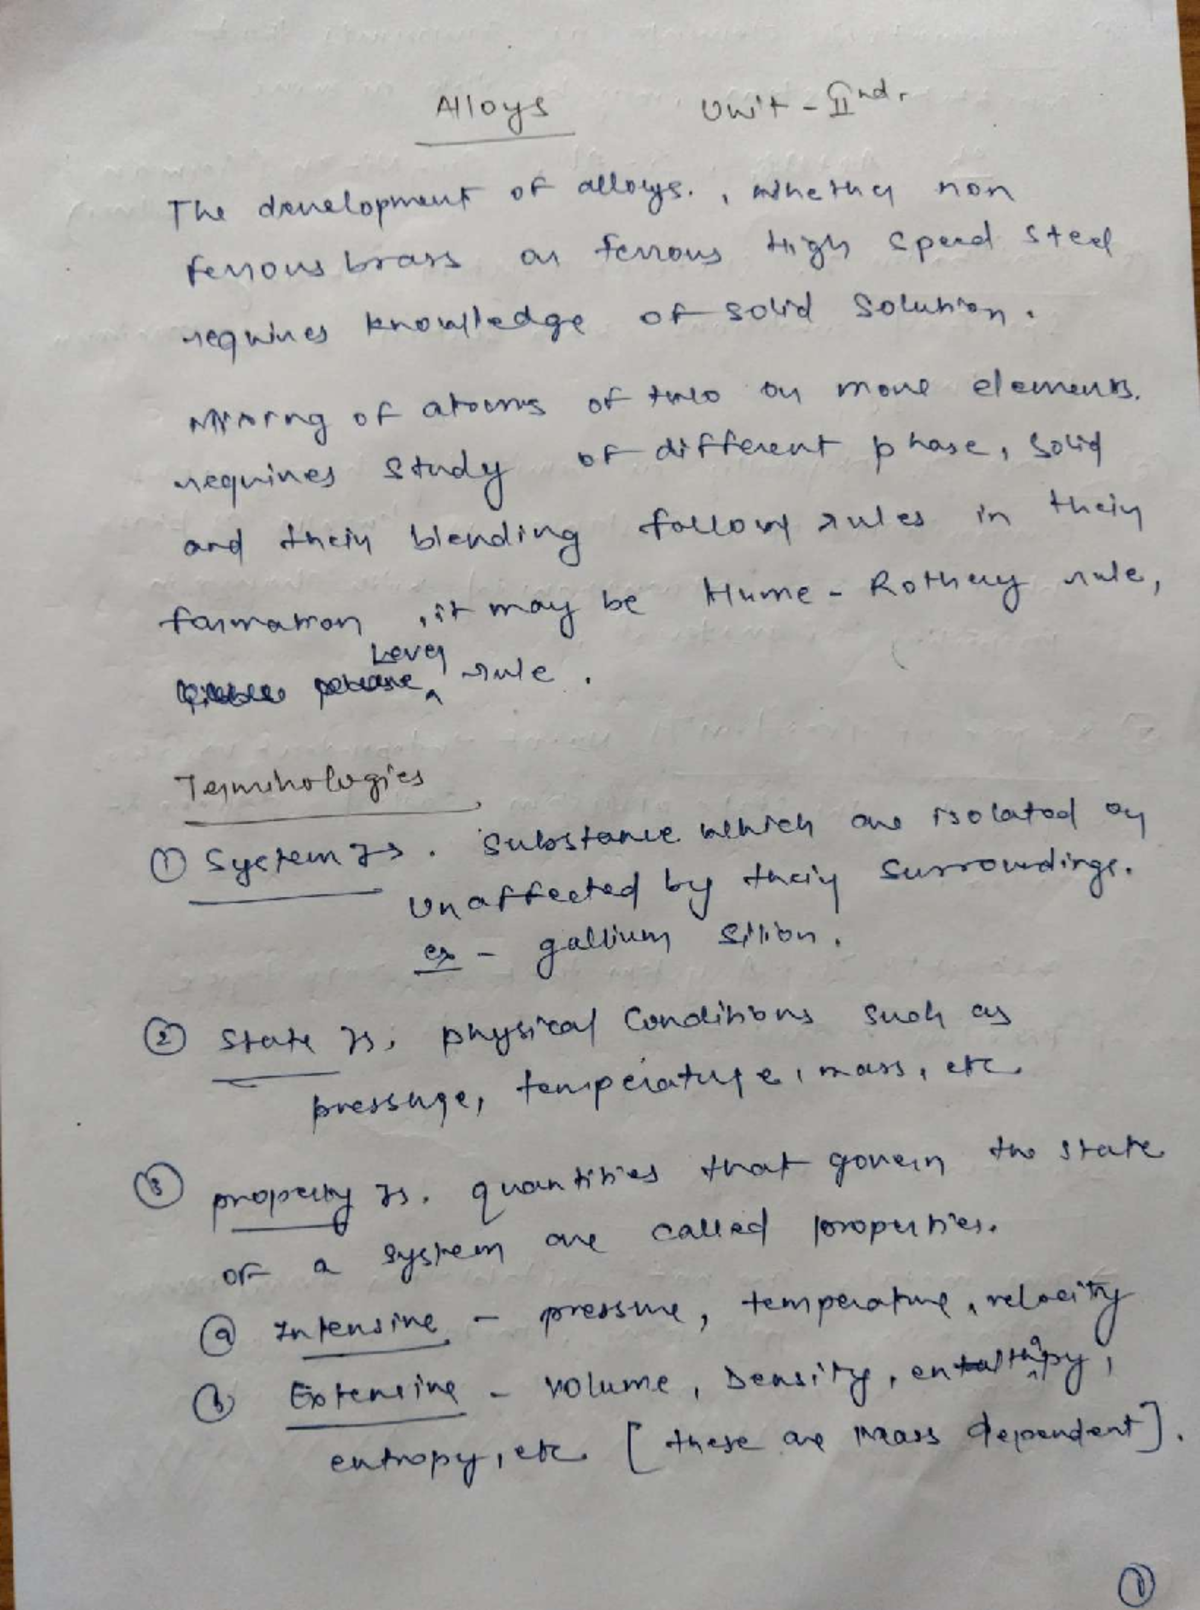 Alloys Unit - IInd.
The development of alloys. , whether non
ferrous brass or ferrous High speed steel
requires knowledge of solid solution.
Mixing of atoms of two or more elements.
requires study of different phase, solid
and their blending follow rules in their
formation , it may be Hume - Rothery rule,
Lever
rule .
Terminologies
① System Is . Substance which are isolated or
unaffected by their surroundings.
ex - gallium
② State Is, physical conditions such as
pressure, temperature, mass, etc.
③ property Is. quantities that govern the state
of a system are called properties.
ⓐ Intensive - pressure, temperature, velocity
ⓑ Extensive - volume, Density, enthalpy,
entropy, etc [ these are mass dependent].
①